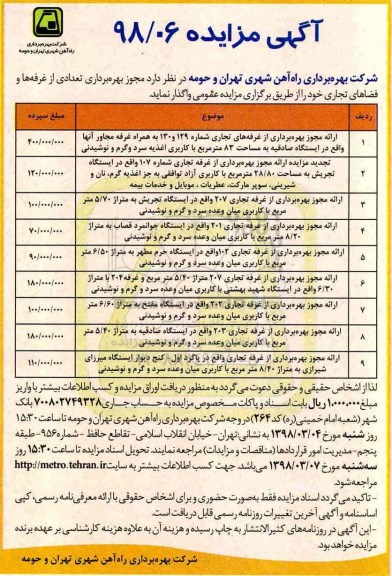 شرکت بهره‌برداری
راه‌آهن شهری تهران و حومه
آگهی مزایده ۹۸/۰۶
شرکت بهره‌برداری راه‌آهن شهری تهران و حومه در نظر دارد مجوز بهره‌برداری تعدادی از غرفه‌ها و
فضاهای تجاری خود را از طریق برگزاری مزایده عمومی واگذار نماید.
ردیف موضوع مبلغ سپرده
۱ ارائه مجوز بهره‌برداری از غرفه‌های تجاری شماره ۱۲۹ و ۱۳۰ به همراه غرفه مجاور آنها
واقع در ایستگاه صادقیه به مساحت ۸۳ مترمربع با کاربری اغذیه سرد و گرم و نوشیدنی ۴۰۰/۰۰۰/۰۰۰
۲ تجدید مزایده ارائه مجوز بهره‌برداری از غرفه تجاری شماره ۱۰۷ واقع در ایستگاه
تجریش به مساحت ۲۸/۸۰ مترمربع با کاربری آزاد توافقی به جز اغذیه گرم، نان و
شیرینی، سوپر مارکت، عطریات، موبایل و خدمات بیمه ۱۲۰/۰۰۰/۰۰۰
۳ ارائه مجوز بهره‌برداری از غرفه تجاری ۲۰۷ واقع در ایستگاه تجریش به متراژ ۵/۷۰ متر
مربع با کاربری میان وعده سرد و گرم و نوشیدنی ۱۰۰/۰۰۰/۰۰۰
۴ ارائه مجوز بهره‌برداری از غرفه تجاری ۲۰۱ واقع در ایستگاه جوانمرد قصاب به متراژ
۸/۲۰ متر مربع با کاربری میان وعده سرد و گرم و نوشیدنی ۷۰/۰۰۰/۰۰۰
۵ ارائه مجوز بهره‌برداری از غرفه تجاری ۱۰۲ واقع در ایستگاه حرم مطهر به متراژ ۶/۵۰ متر
مربع با کاربری میان وعده سرد و گرم و نوشیدنی ۹۰/۰۰۰/۰۰۰
۶ ارائه مجوز بهره‌برداری از غرفه تجاری ۲۰۷ متراژ ۵/۴۰ متر مربع و غرفه ۲۰۴ با متراژ
۶/۳۰ واقع در ایستگاه شهید بهشتی با کاربری میان وعده سرد و گرم و نوشیدنی ۱۸۰/۰۰۰/۰۰۰
۷ ارائه مجوز بهره‌برداری از غرفه تجاری ۲۰۲ واقع در ایستگاه مفتح به متراژ ۶/۶۰ متر
مربع با کاربری میان وعده سرد و گرم و نوشیدنی ۱۰۰/۰۰۰/۰۰۰
۸ ارائه مجوز بهره‌برداری از غرفه تجاری ۲۰۳ واقع در ایستگاه صادقیه به متراژ ۵/۴۰ متر
مربع با کاربری میان وعده سرد و گرم و نوشیدنی ۱۸۰/۰۰۰/۰۰۰
۹ ارائه مجوز بهره‌برداری از غرفه تجاری واقع در پاگرد اول- کنج دیوار ایستگاه میرزای
شیرازی به متراژ ۸/۴۰ متر مربع با کاربری میان وعده سرد و گرم و نوشیدنی ۱۱۰/۰۰۰/۰۰۰
لذا از اشخاص حقیقی و حقوقی دعوت می‌گردد به منظور دریافت اوراق مزایده و کسب اطلاعات بیشتر با واریز
مبلغ ۱،۰۰۰،۰۰۰ ریال بابت اسناد و پاکات مخصوص مزایده به حساب جاری ۷۰۰۸۰۲۷۴۹۳۲۸ بانک
شهر (شعبه امام خمینی (ره) کد ۲۶۴) در وجه شرکت بهره‌برداری راه‌آهن شهری تهران و حومه تا ساعت ۱۵:۳۰
روز شنبه مورخ ۱۳۹۸/۰۳/۰۴ به نشانی: تهران- خیابان انقلاب اسلامی- تقاطع حافظ - شماره ۹۵۶- طبقه
پنجم- مدیریت امور قراردادها (مناقصات و مزایدات) مراجعه نمایند. تحویل اسناد مزایده تا ساعت ۱۵:۳۰ روز
سه‌شنبه مورخ ۱۳۹۸/۰۳/۰۷ می‌باشد. جهت کسب اطلاعات بیشتر به سایت http://metro.tehran.ir
مراجعه شود.
- تاکید می‌گردد اسناد مزایده فقط به‌صورت حضوری و برای اشخاص حقوقی با ارائه معرفی‌نامه رسمی، کپی
اساسنامه و آگهی آخرین تغییرات روزنامه رسمی قابل دریافت است.
- این آگهی در روزنامه‌های کثیرالانتشار به چاپ رسیده و هزینه آن به علاوه هزینه کارشناسی بر عهده برنده
مزایده خواهد بود.
شرکت بهره‌برداری راه‌آهن شهری تهران و حومه